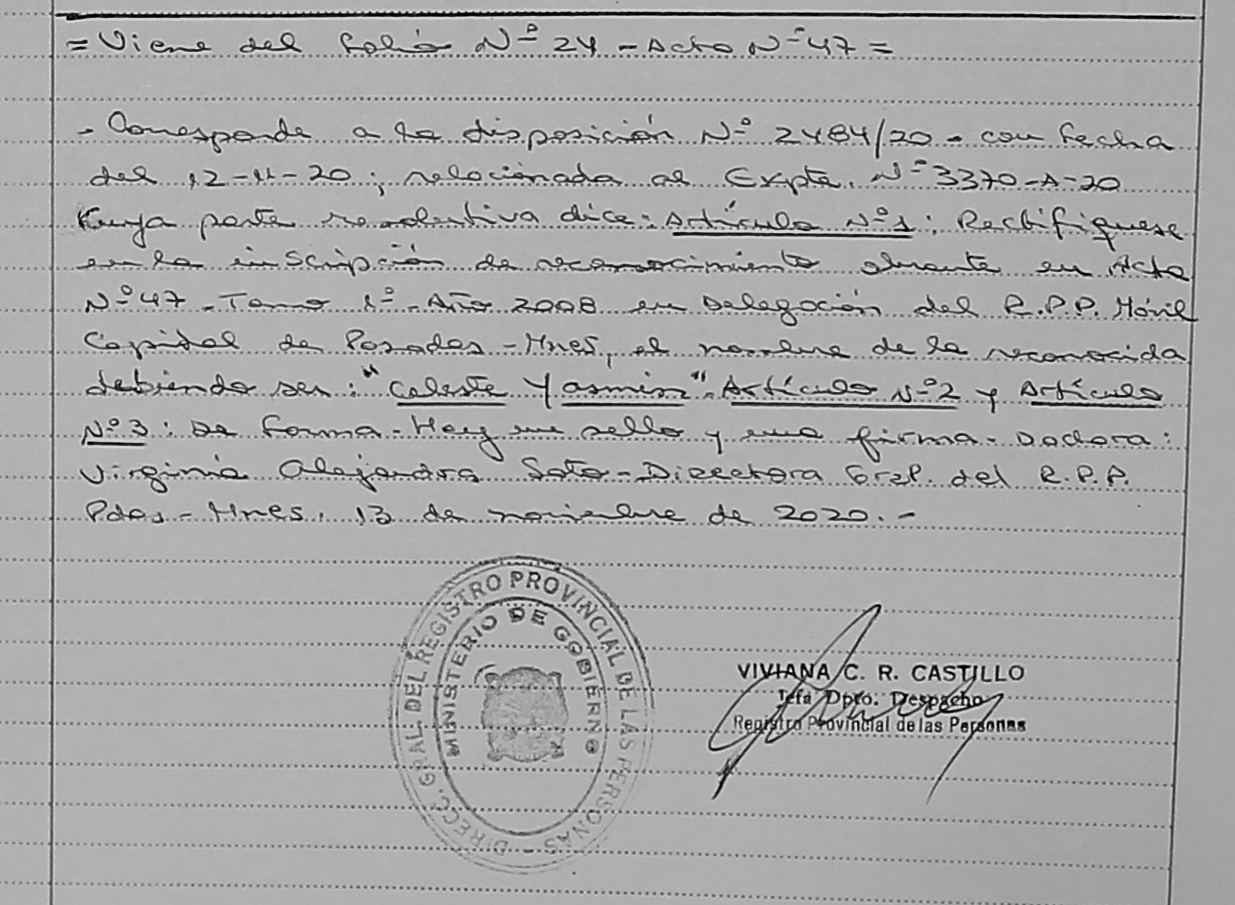 = Viene del folio Nº 24 - Acta Nº 47 =
- Corresponde a la disposición Nº 2484/20 - con fecha
del 12-11-20; relacionada al Expte. Nº 3370-A-20
Kuya parte resolutiva dice: Artículo Nº1: Rectifiquese
en la inscripción de reconocimiento obrante en Acta
Nº 47 - Tomo 1º - Año 2008 en Delegación del R.P.P. Móvil
Capital de Posadas - Mnes, el nombre de la reconocida
debiendo ser: "Celeste Yasmin". Artículo Nº2 y Artículo
Nº3: De forma - Hay un sello y una firma - Doctora:
Virginia Alejandra Soto - Directora Gral. del R.P.P.
Pdas - Mnes, 13 de noviembre de 2020. -
DIRECC. GRAL. DEL REGISTRO PROVINCIAL DE LAS PERSONAS -
MINISTERIO DE GOBIERNO
VIVIANA C. R. CASTILLO
Jefa Dpto. Despacho
Registro Provincial de las Personas